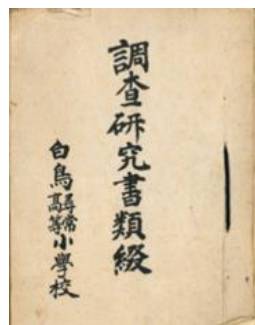 調査研究書類綴
白鳥尋常高等小學校